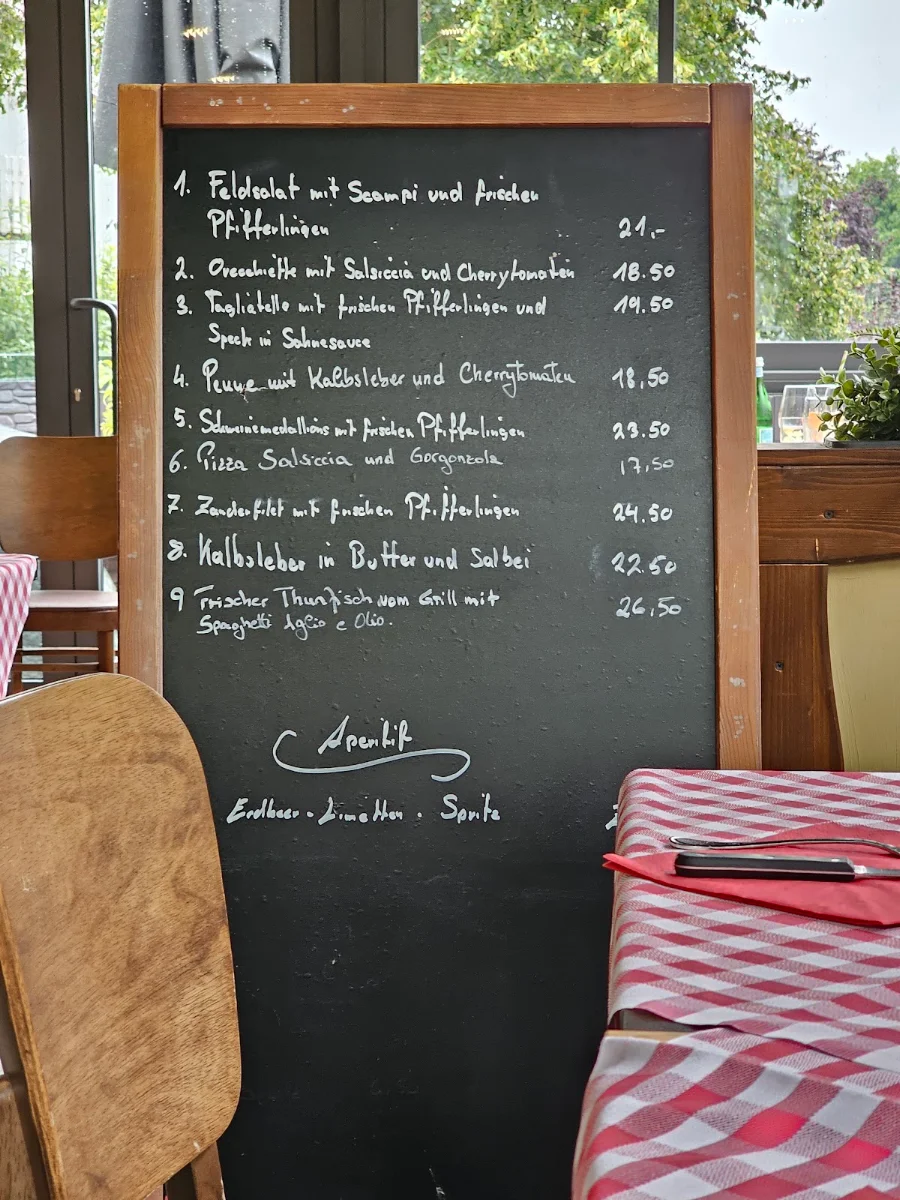 1. Feldsalat mit Scampi und frischen
Pfifferlingen 21,-
2. Orecchiette mit Salsiccia und Cherrytomaten 18.50
3. Tagliatelle mit frischen Pfifferlingen und 19.50
Speck in Sahnesauce
4. Penne mit Kalbsleber und Cherrytomaten 18,50
5. Schweinemedallions mit frischen Pfifferlingen 23.50
6. Pizza Salsiccia und Gorgonzola 17,50
7. Zanderfilet mit frischen Pfifferlingen 24.50
8. Kalbsleber in Butter und Salbei 22.50
9 Frischer Thunfisch vom Grill mit 26,50
Spaghetti Aglio e Olio.
Aperitif
Erdbeer - Limetten - Spritz